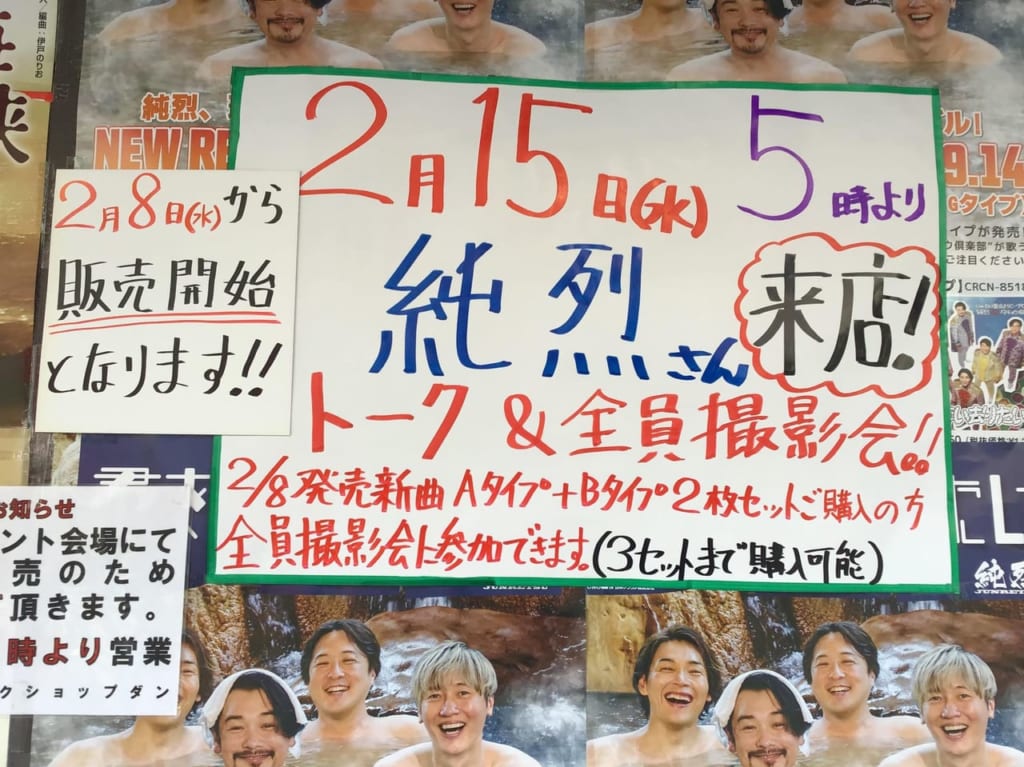 ／編曲：伊戸のりお
純烈、
NEW RE
2月15日(水) 5時より
純烈さん 来店!
トーク & 全員撮影会!!
2/8発売新曲 Aタイプ+Bタイプ2枚セットご購入の方
全員撮影会に参加できます。(3セットまで購入可能)
2月8日(水)から
販売開始
となります!!
ル!
9.14
Gタイプ】
イプが発売!
倶楽部”が歌う
ご注目ください
プ】CRCN-8518
お知らせ
ント会場にて
売のため
頂きます。
時より営業
クショップダン
純烈
JUNRETSU